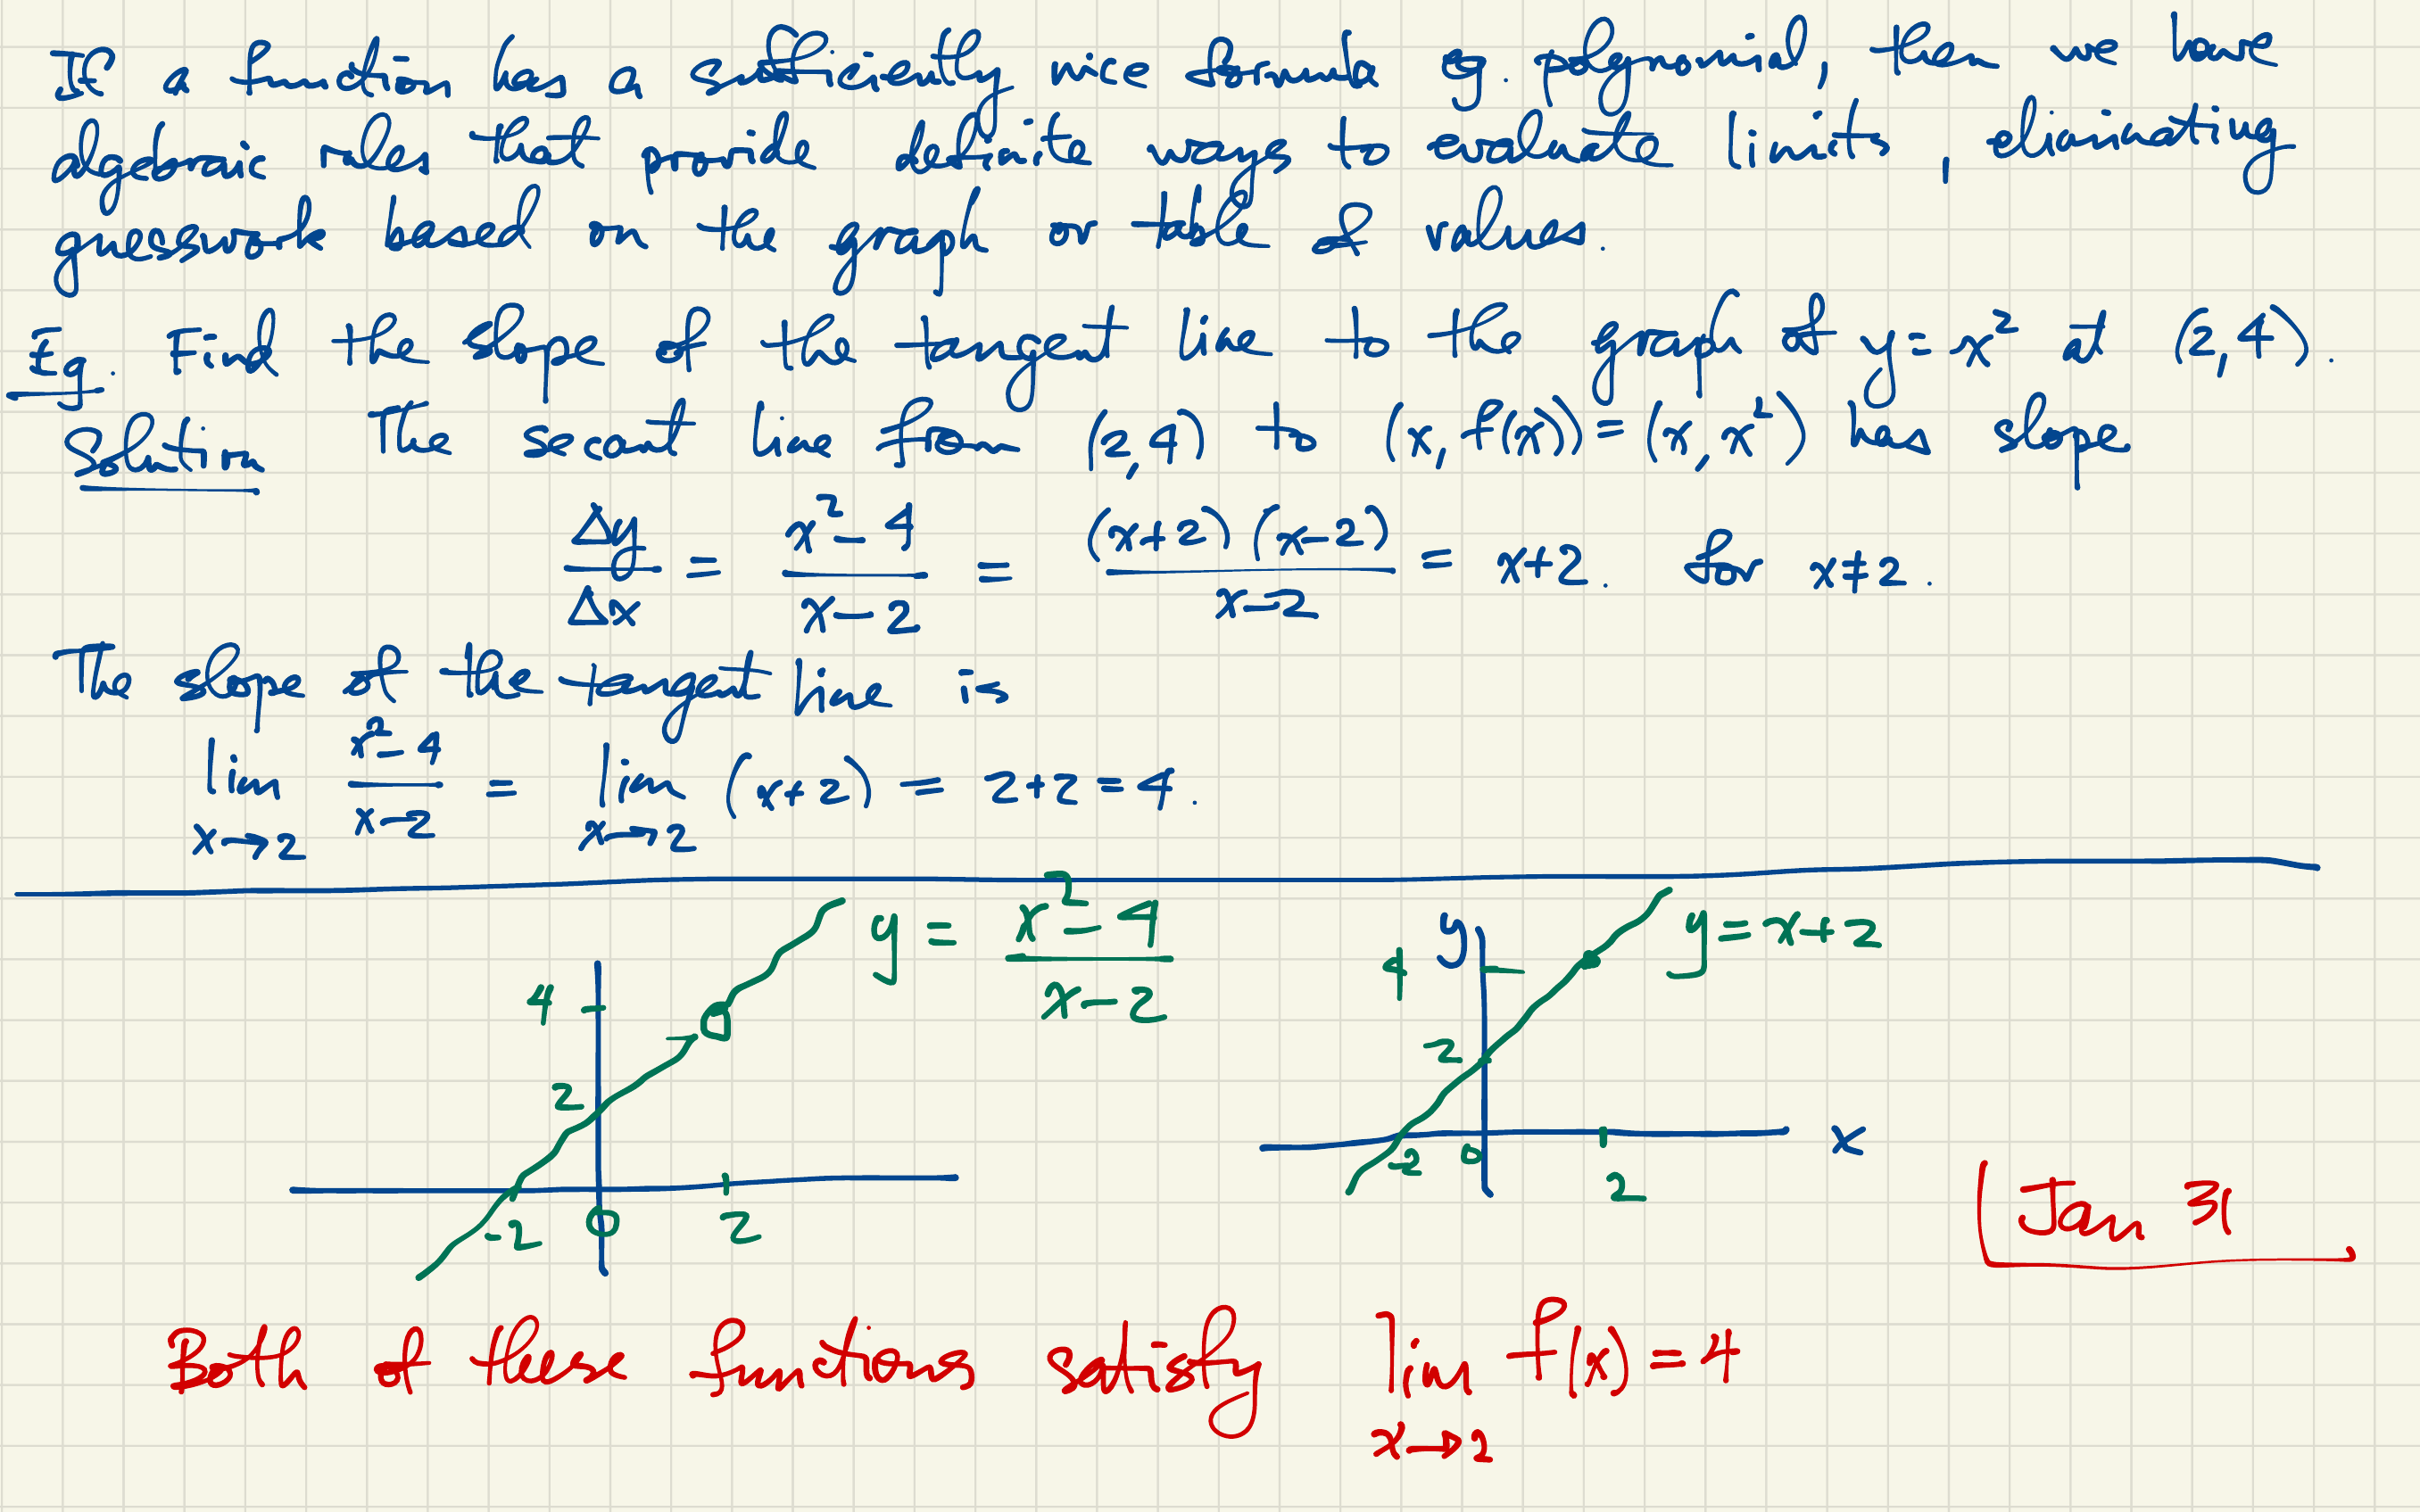 If a function has a sufficiently nice formula eg. polynomial, then we have
algebraic rules that provide definite ways to evaluate limits, eliminating
guesswork based on the graph or table of values.
Eg. Find the slope of the tangent line to the graph of y = x² at (2,4).
Solution The secant line from (2,4) to (x, f(x)) = (x, x²) has slope
Δy/Δx = (x²-4)/(x-2) = (x+2)(x-2)/(x-2) = x+2. for x≠2.
The slope of the tangent line is
lim x→2 (x²-4)/(x-2) = lim x→2 (x+2) = 2+2 = 4.
y = (x²-4)/(x-2)
4
2
-2 0 2
y y = x+2
4
2
x
-2 0 2
Jan 31
Both of these functions satisfy lim x→2 f(x) = 4